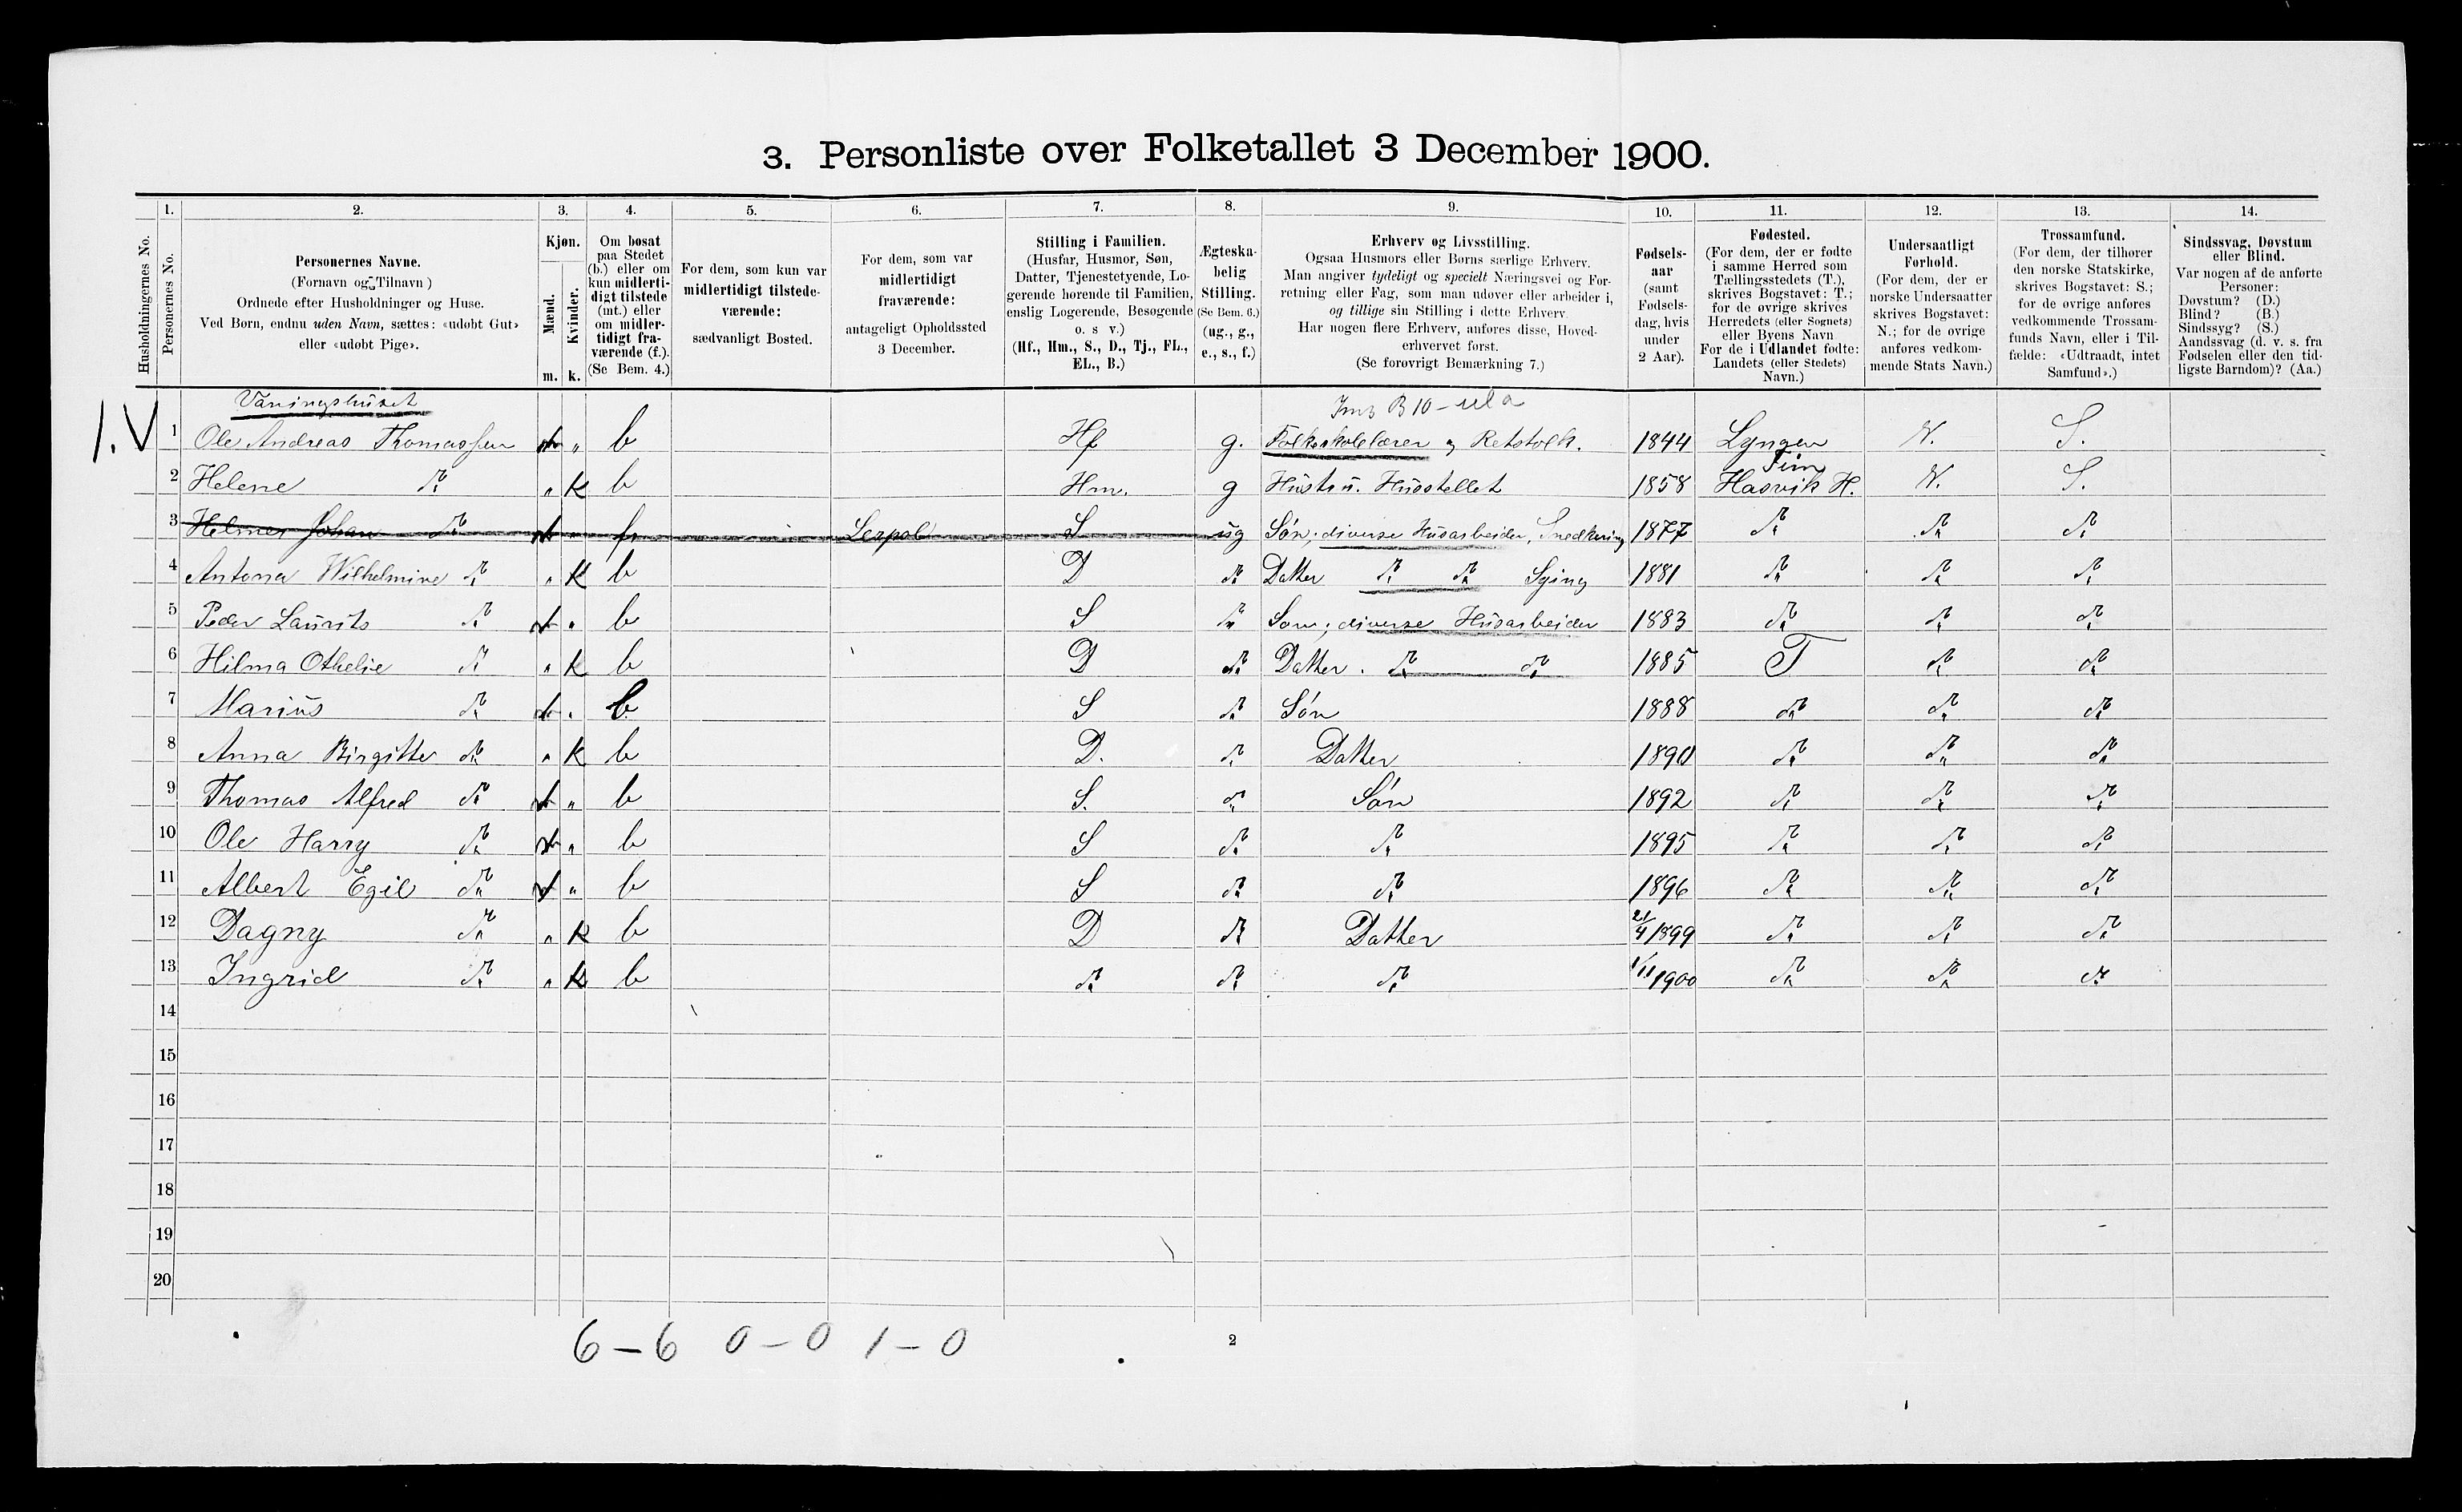 3. Personliste over Folketallet 3 December 1900.
1. 2. 3. 4. 5. 6. 7. 8. 9. 10. 11. 12. 13. 14.
Husholdningernes No.
Personernes No.
Personernes Navne.
(Fornavn og Tilnavn)
Ordnede efter Husholdninger og Huse.
Ved Børn, endnu uden Navn, sættes: «udøbt Gut»
eller «udøbt Pige».
Kjøn.
Mænd.
Kvinder.
m. k.
Om bosat
paa Stedet
(b.) eller om
kun midlerti-
digt tilstede
(mt.) eller
om midler-
tidigt fra-
værende (f.).
(Se Bem. 4.)
For dem, som kun var
midlertidigt tilstede-
værende:
sædvanligt Bosted.
For dem, som var
midlertidigt
fraværende:
antageligt Opholdssted
3 December.
Stilling i Familien.
(Husfar, Husmor, Søn,
Datter, Tjenestetyende, Lo-
gerende hørende til Familien,
enslig Logerende, Besøgende
o. s v.)
(Hf., Hm., S., D., Tj., FL.,
EL., B.)
Ægteska-
belig
Stilling.
(Se Bem. 6.)
(ug., g.,
e., s., f.)
Erhverv og Livsstilling.
Ogsaa Husmors eller Børns særlige Erhverv.
Man angiver tydeligt og specielt Næringsvei og For-
retning eller Fag, som man udøver eller arbeider i,
og tillige sin Stilling i dette Erhverv.
Har nogen flere Erhverv, anføres disse, Hoved-
erhvervet først.
(Se forøvrigt Bemærkning 7.)
Fødsels-
aar
(samt
Fødsels-
dag, hvis
under
2 Aar).
Fødested.
(For dem, der er fødte
i samme Herred som
Tællingsstedets (T.),
skrives Bogstavet: T.;
for de øvrige skrives
Herredets (eller Sognets)
eller Byens Navn
For de i Udlandet fødte:
Landets (eller Stedets)
Navn.)
Undersaatligt
Forhold.
(For dem, der er
norske Undersaatter
skrives Bogstavet:
N.; for de øvrige
anføres vedkom-
mende Stats Navn.)
Trossamfund.
(For dem, der tilhører
den norske Statskirke,
skrives Bogstavet: S.;
for de øvrige anføres
vedkommende Trossam-
funds Navn, eller i Til-
fælde: «Udtraadt, intet
Samfund».)
Sindssvag, Døvstum
eller Blind.
Var nogen af de anførte
Personer:
Døvstum? (D.)
Blind? (B.)
Sindssyg? (S.)
Aandssvag (d. v. s. fra
Fødselen eller den tid-
ligste Barndom)? (Aa.)
Vaningshuset
1.V 1 Ole Andreas Thomassen m „ b Hf g. Folkeskolelærer og Retstolk. 1844 Lyngen N. S.
2 Helene do „ K b Hm. g Hustru. Husstellet 1858 Hasvik H. N. S.
3 Helmer Johan do m „ f Lerpol S ug Søn; diverse Husarbeider, Snedkering 1877 do do do
4 Antona Wilhelmine do „ K b D do Datter do do Sying 1881 do do do
5 Peder Laurits do m „ b S do Søn; diverse Husarbeider 1883 do do do
6 Hilma Othelie do „ K b D do Datter. do do 1885 T do do
7 Marius do m „ b S do Søn 1888 do do do
8 Anna Birgitte do „ K b D. do Datter 1890 do do do
9 Thomas Alfred do m „ b S. do Søn 1892 do do do
10 Ole Harry do m „ b S do do 1895 do do do
11 Albert Egil do m „ b S do do 1896 do do do
12 Dagny do „ K b D do Datter 21/4 1899 do do do
13 Ingrid do „ K b do do do 1/11 1900 do do do
14
15
16
17
18
19
20
6 – 6 0 – 0 1 – 0
2